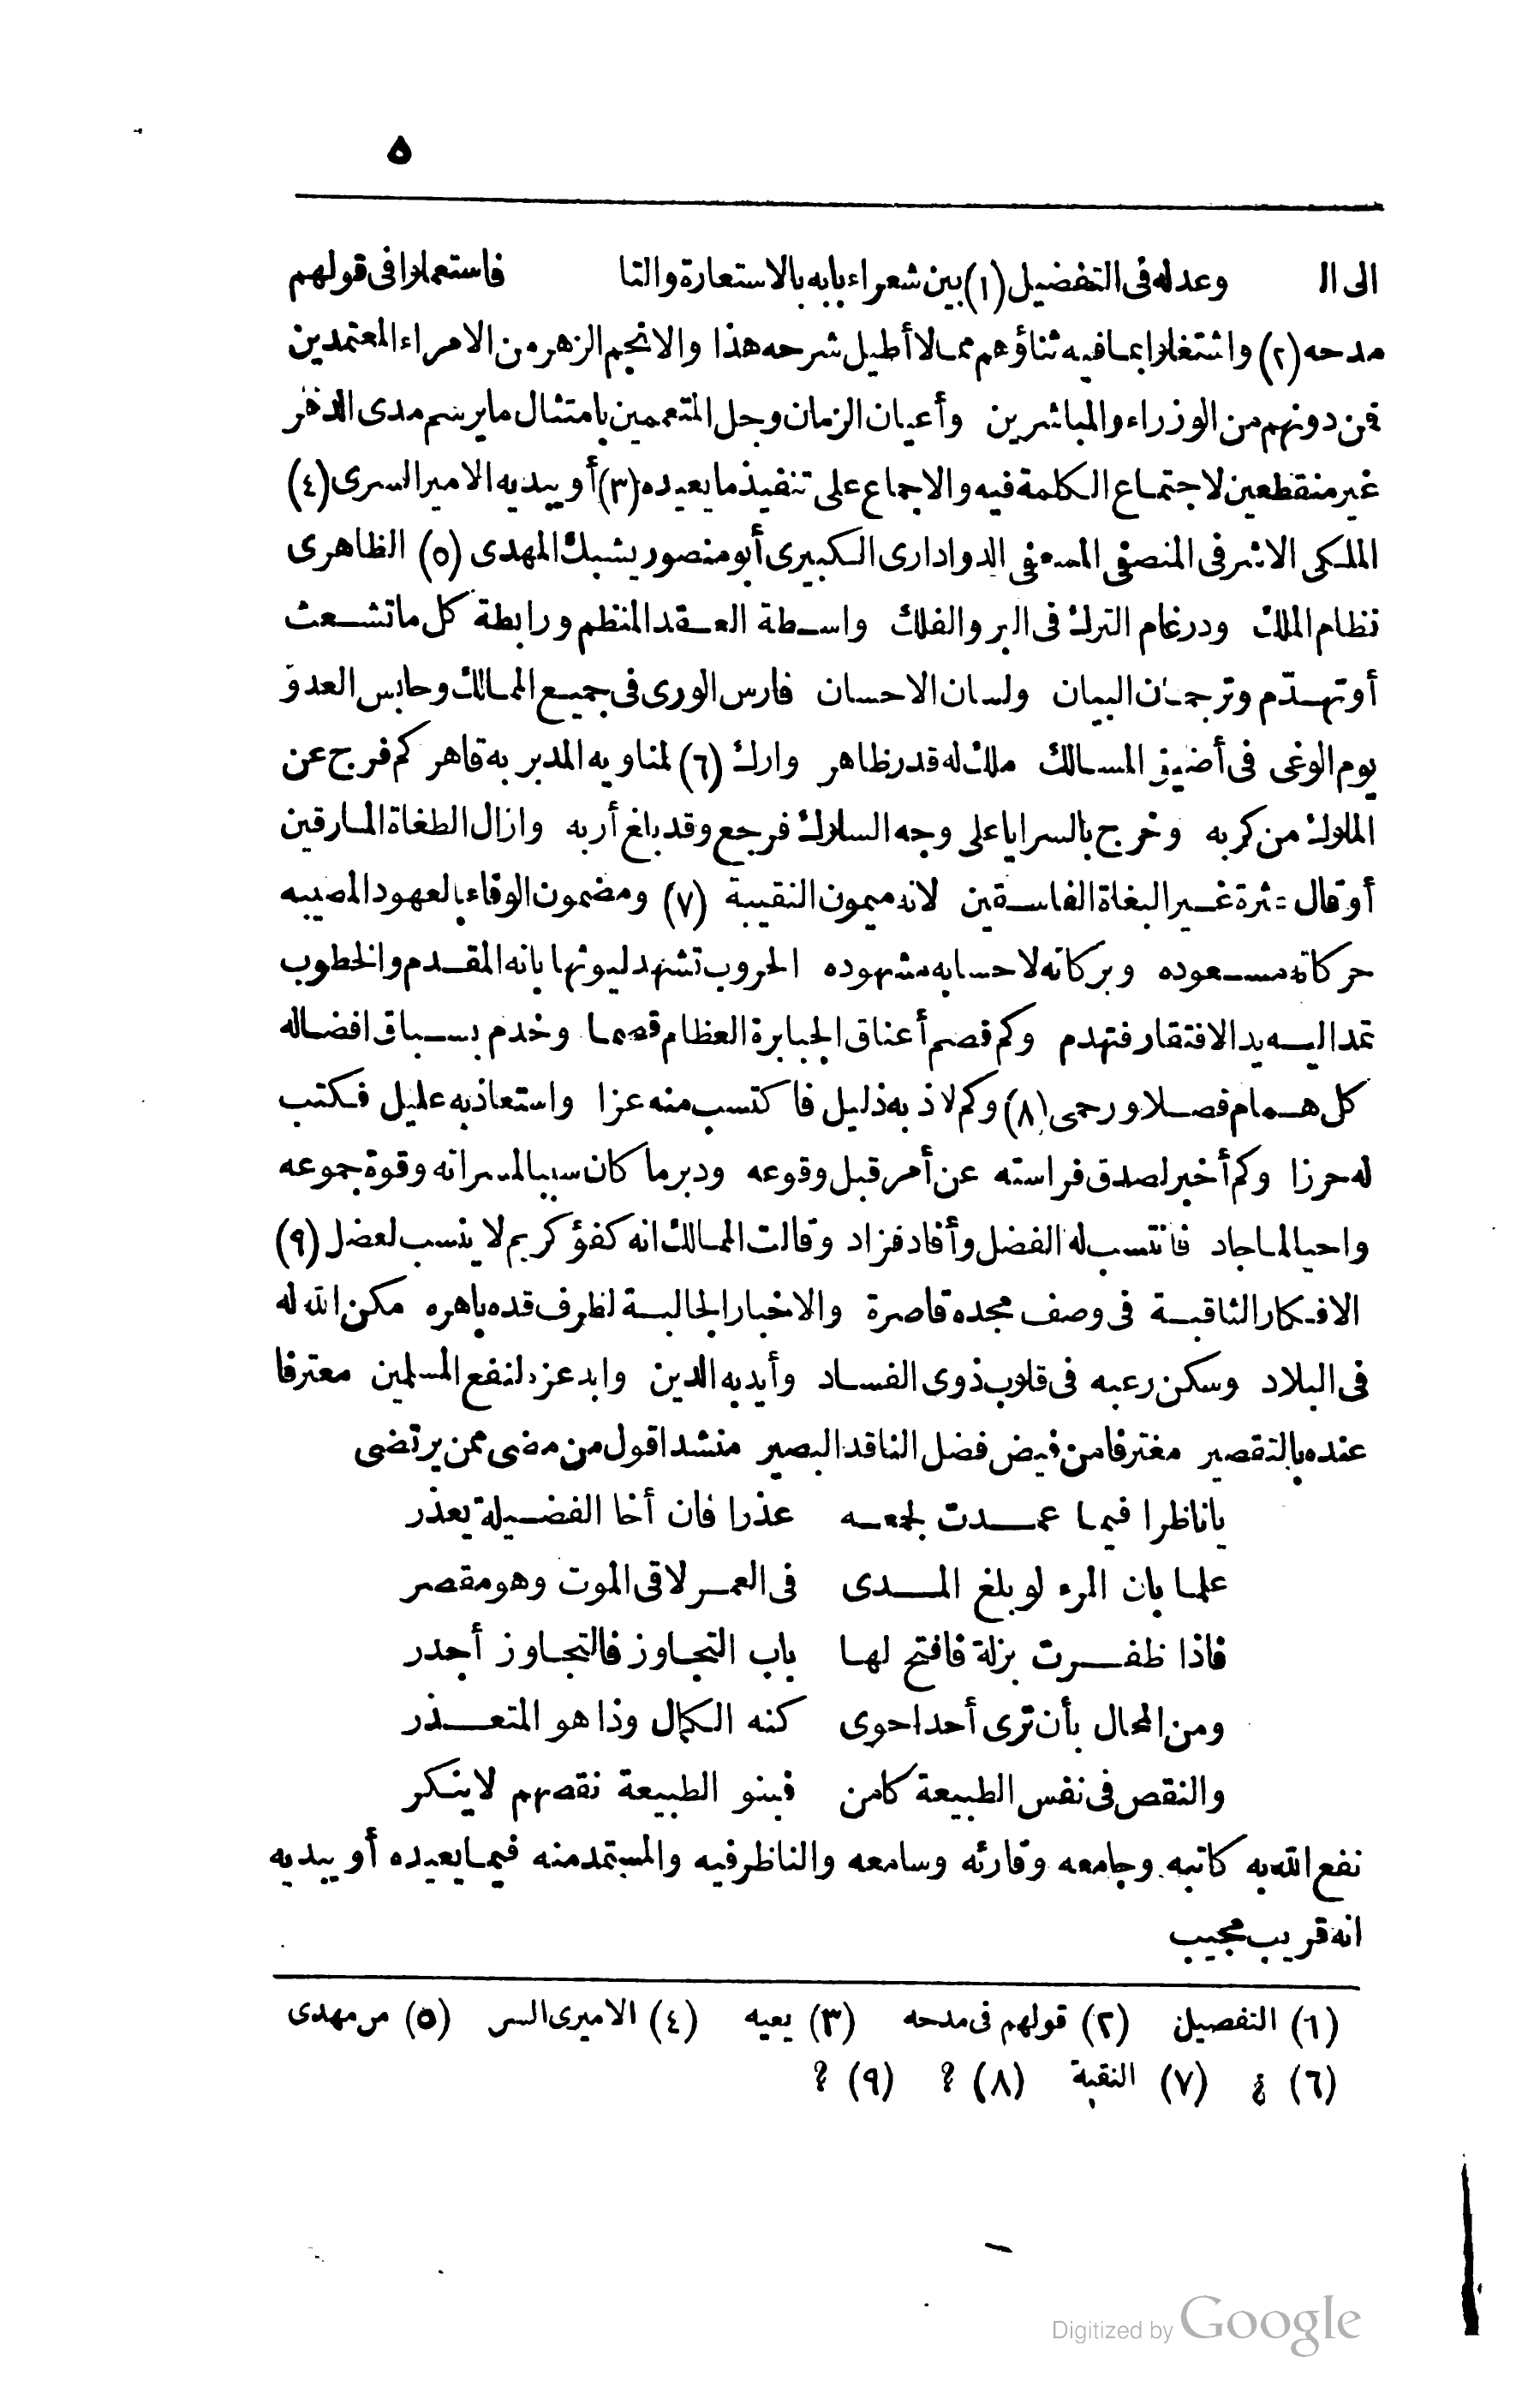 ٥
الى ال وعدله فى التفضيل (١) بين شعراء بابه بالاستعارة والتا فاستعملوا فى قولهم
مدحه (٢) واشتغلوا بما فيه ثناؤهم مما لا أطيل شرحه هذا والانجم الزهر من الامراء المعتمدين
فمن دونهم من الوزراء والمباشرين وأعيان الزمان وجل المتعممين بامتثال ما يرسم مدى الدهر
غير منقطعين لاجتماع الكلمة فيه والاجماع على تنفيذ ما يعيده (٣) أو يبديه الامير السرى (٤)
الملكى الاشرفى المنصفى المسعفى الدوادارى الكبيرى أبو منصور يشبك المهدى (٥) الظاهرى
نظام الملك ودرغام الترك فى البر والفلك واسطة العقد المنظم ورابطة كل ما تشعث
أو تهدّم وترجمان البيان ولسان الاحسان فارس الورى فى جميع الممالك وحابس العدوّ
يوم الوغى فى أضيق المسالك ملك له قدر ظاهر وارك (٦) لمناويه المدبر به قاهر كم فرج عن
الملوك من كربه وخرج بالسرايا على وجه السلوك فرجع وقد بلغ أربه وازال الطغاة المارقين
أو قال عثرة غير البغاة الفاسقين لانه ميمون النقيبة (٧) ومضمون الوفاء بالعهود المصيبه
حركاته مسعوده وبركاته لاحسابه مشهوده الحروب تشهد ليوثها بانه المقدم والخطوب
تمد اليه يد الافتقار فتهدم وكم قصم أعناق الجبابرة العظام قصما وخدم بسباق افضاله
كل همام فصلا ورحمى (٨) وكم لاذ به ذليل فاكتسب منه عزا واستعاذ به عليل فكتب
له حرزا وكم أخبر لصدق فراسته عن أمر قبل وقوعه ودبر ما كان سببا لمسراته وقوة جموعه
واحيا لما جاد فانتسب له الفضل وأفاد فزاد وقالت الممالك انه كفؤ كريم لا ينسب لعضل (٩)
الافكار الثاقبة فى وصف مجده قاصرة والاخبار الجالبة لظرف قده باهره مكن الله له
فى البلاد وسكن رعبه فى قلوب ذوى الفساد وأيد به الدين وابد عزه لنفع المسلمين معترفا
عنده بالتقصير مغترفا من فيض فضل الناقد البصير منشدا قول من مضى ممن يرتضى
يا ناظرا فيما عمدت لجمعه عذرا فان أخا الفضيلة يعذر
علما بان المرء لو بلغ المدى فى العمر لاقى الموت وهو مقصر
فاذا ظفرت بزلة فافتح لها باب التجاوز فالتجاوز أجدر
ومن المحال بأن ترى أحدا حوى كنه الكمال وذا هو المتعذر
والنقص فى نفس الطبيعة كامن فبنو الطبيعة نقصهم لا ينكر
نفع الله به كاتبه وجامعه وقارئه وسامعه والناظر فيه والمستمد منه فيما يعيده أو يبديه
انه قريب مجيب
(١) التفصيل (٢) قولهم فى مدحه (٣) يعيه (٤) الاميرى السر (٥) من مهدى
(٦) ؟ (٧) النقبة (٨) ؟ (٩) ؟
Digitized by Google